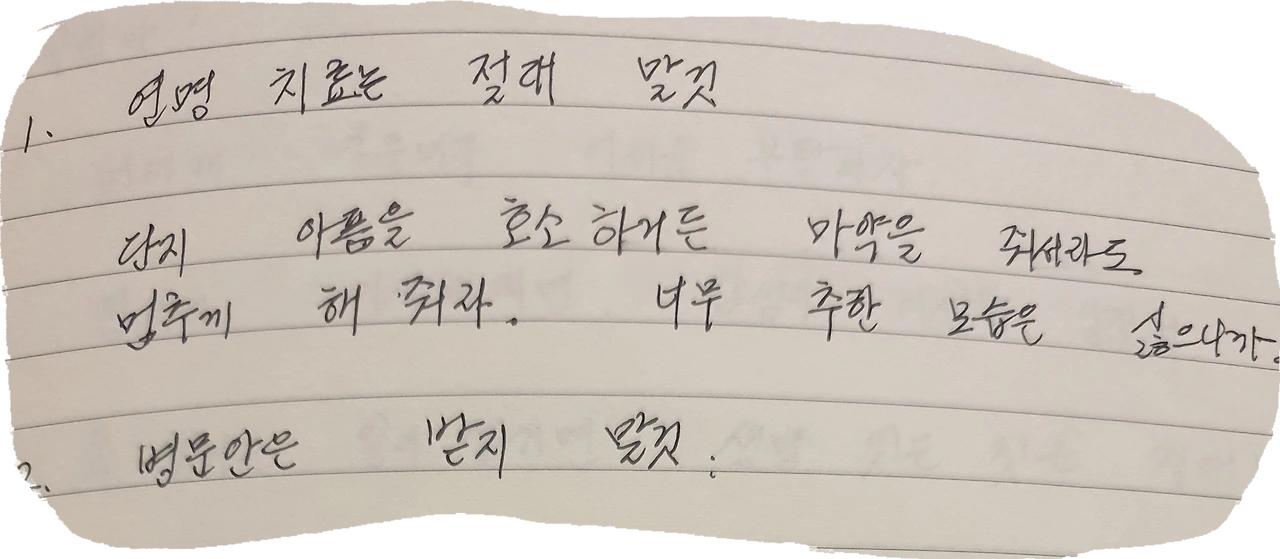 1. 연명 치료는 절대 말것
단지 아픔을 호소하거든 마약을 줘서라도
멈추게 해 줘라. 너무 추한 모습은 싫으니까.
2. 병문안은 받지 말것.